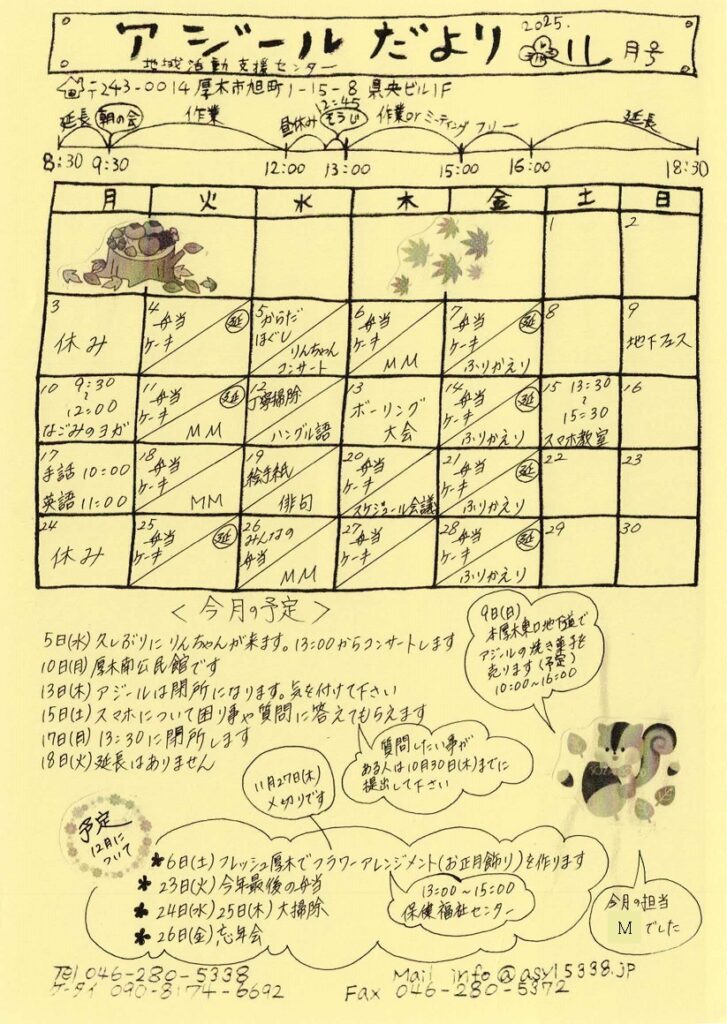 アジールだより 2025. 11月号
地域活動支援センター
〒243-0014 厚木市旭町1-15-8 県央ビル1F
延長 朝の会 作業 昼休み 12:45 そうじ 作業orミーティング フリー 延長
8:30 9:30 12:00 13:00 15:00 16:00 18:30
月 火 水 木 金 土 日
1 2
3 休み
4 弁当 ケーキ 延
5 からだほぐし りんちゃんコンサート
6 弁当 ケーキ MM
7 弁当 ケーキ 延 ふりかえり
8
9 地下フェス
10 9:30~12:00 なごみのヨガ
11 弁当 ケーキ 延 MM
12 丁寧掃除 ハングル語
13 ボーリング大会
14 弁当 ケーキ 延 ふりかえり
15 13:30~15:30 スマホ教室
16
17 手話 10:00 英語 11:00
18 弁当 ケーキ MM
19 絵手紙 俳句
20 弁当 ケーキ スケジュール会議
21 弁当 ケーキ 延 ふりかえり
22
23
24 休み
25 弁当 ケーキ 延
26 みんなの弁当 MM
27 弁当 ケーキ
28 弁当 ケーキ 延 ふりかえり
29
30
<今月の予定>
5日(水) 久しぶりにりんちゃんが来ます。13:00からコンサートします
10日(月) 厚木南公民館です
13日(木) アジールは閉所になります。気を付けて下さい
15日(土) スマホについて困り事や質問に答えてもらえます
17日(月) 13:30に閉所します
18日(火) 延長はありません
9日(日)
本厚木東口地下道で
アジールの焼き菓子を
売ります(予定)
10:00~16:00
質問したい事が
ある人は10月30日(木)までに
提出して下さい
11月27日(木)
〆切りです
予定
12月に
ついて
*6日(土) フレッシュ厚木でフラワーアレンジメント(お正月飾り)を作ります
*23日(火) 今年最後の弁当
*24日(水) 25日(木) 大掃除
*26日(金) 忘年会
13:00~15:00
保健福祉センター
今月の担当
M でした
Tel 046-280-5338
ケータイ 090-8174-6692
Mail info@asyl5338.jp
Fax 046-280-5372